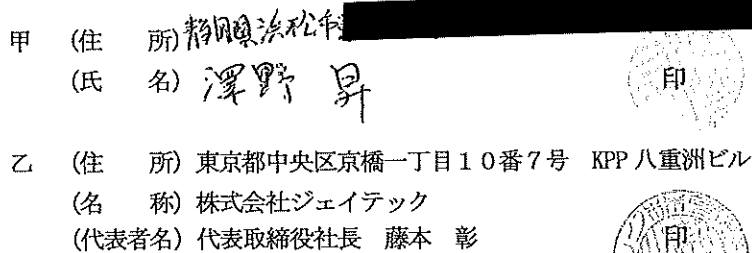 甲 (住 所) 静岡県浜松市
(氏 名) 澤野 昇
印
乙 (住 所) 東京都中央区京橋一丁目10番7号 KPP八重洲ビル
(名 称) 株式会社ジェイテック
(代表者名) 代表取締役社長 藤本 彰
印